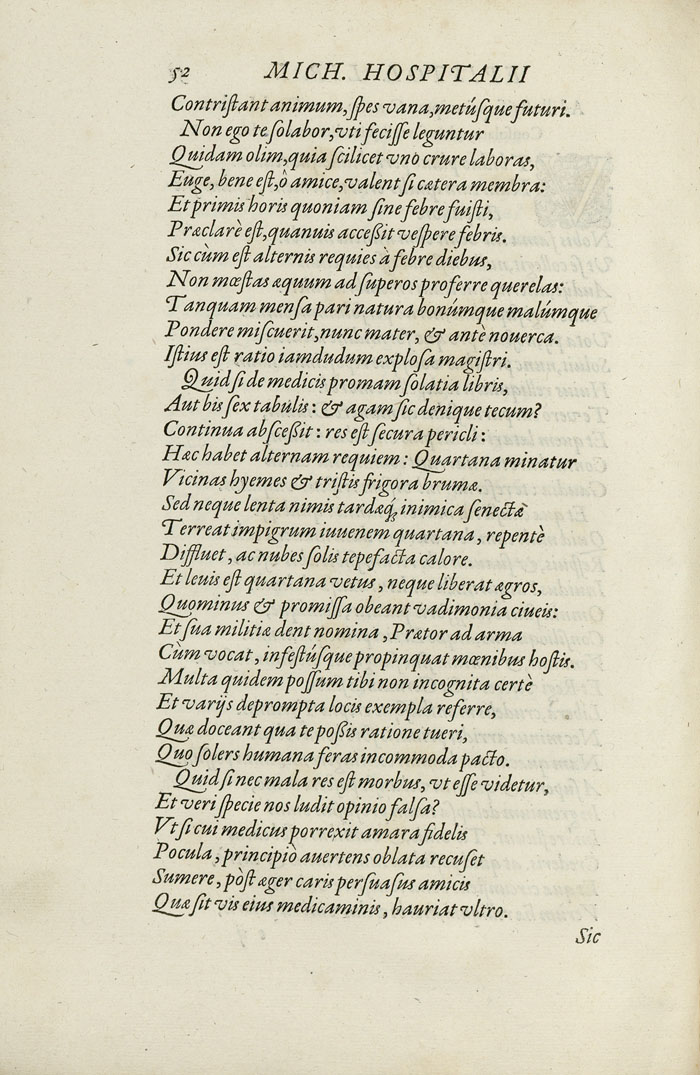 52 MICH. HOSPITALII
Contriſtant animum, ſpes vana, metúſque futuri.
Non ego te ſolabor, vti feciſſe leguntur
Quidam olim, quia ſcilicet vno crure laboras,
Euge, bene eſt, ô amice, valent ſi cætera membra:
Et primis horis quoniam ſine febre fuiſti,
Præclarè eſt, quanuis acceßit veſpere febris.
Sic cùm eſt alternis requies à febre diebus,
Non mœſtas æquum ad ſuperos proferre querelas:
Tanquam menſa pari natura bonúmque malúmque
Pondere miſcuerit, nunc mater, & antè nouerca.
Iſtius eſt ratio iamdudum exploſa magiſtri.
Quid ſi de medicis promam ſolatia libris,
Aut bis ſex tabulis: & agam ſic denique tecum?
Continua abſceßit: res eſt ſecura pericli:
Hæc habet alternam requiem: Quartana minatur
Vicinas hyemes & triſtis frigora brumæ.
Sed neque lenta nimis tardæq́; inimica ſenectæ
Terreat impigrum iuuenem quartana, repentè
Diffluet, ac nubes ſolis tepefacta calore.
Et leuis eſt quartana vetus, neque liberat ægros,
Quominus & promiſſa obeant vadimonia ciueis:
Et ſua militiæ dent nomina, Prætor ad arma
Cùm vocat, infeſtúſque propinquat mœnibus hoſtis.
Multa quidem poſſum tibi non incognita certè
Et varijs deprompta locis exempla referre,
Quæ doceant qua te poßis ratione tueri,
Quo ſolers humana feras incommoda pacto.
Quid ſi nec mala res eſt morbus, vt eſſe videtur,
Et veri ſpecie nos ludit opinio falſa?
Vt ſi cui medicus porrexit amara fidelis
Pocula, principiò auertens oblata recuſet
Sumere, pòſt æger caris perſuaſus amicis
Quæ ſit vis eius medicaminis, hauriat vltro.
Sic